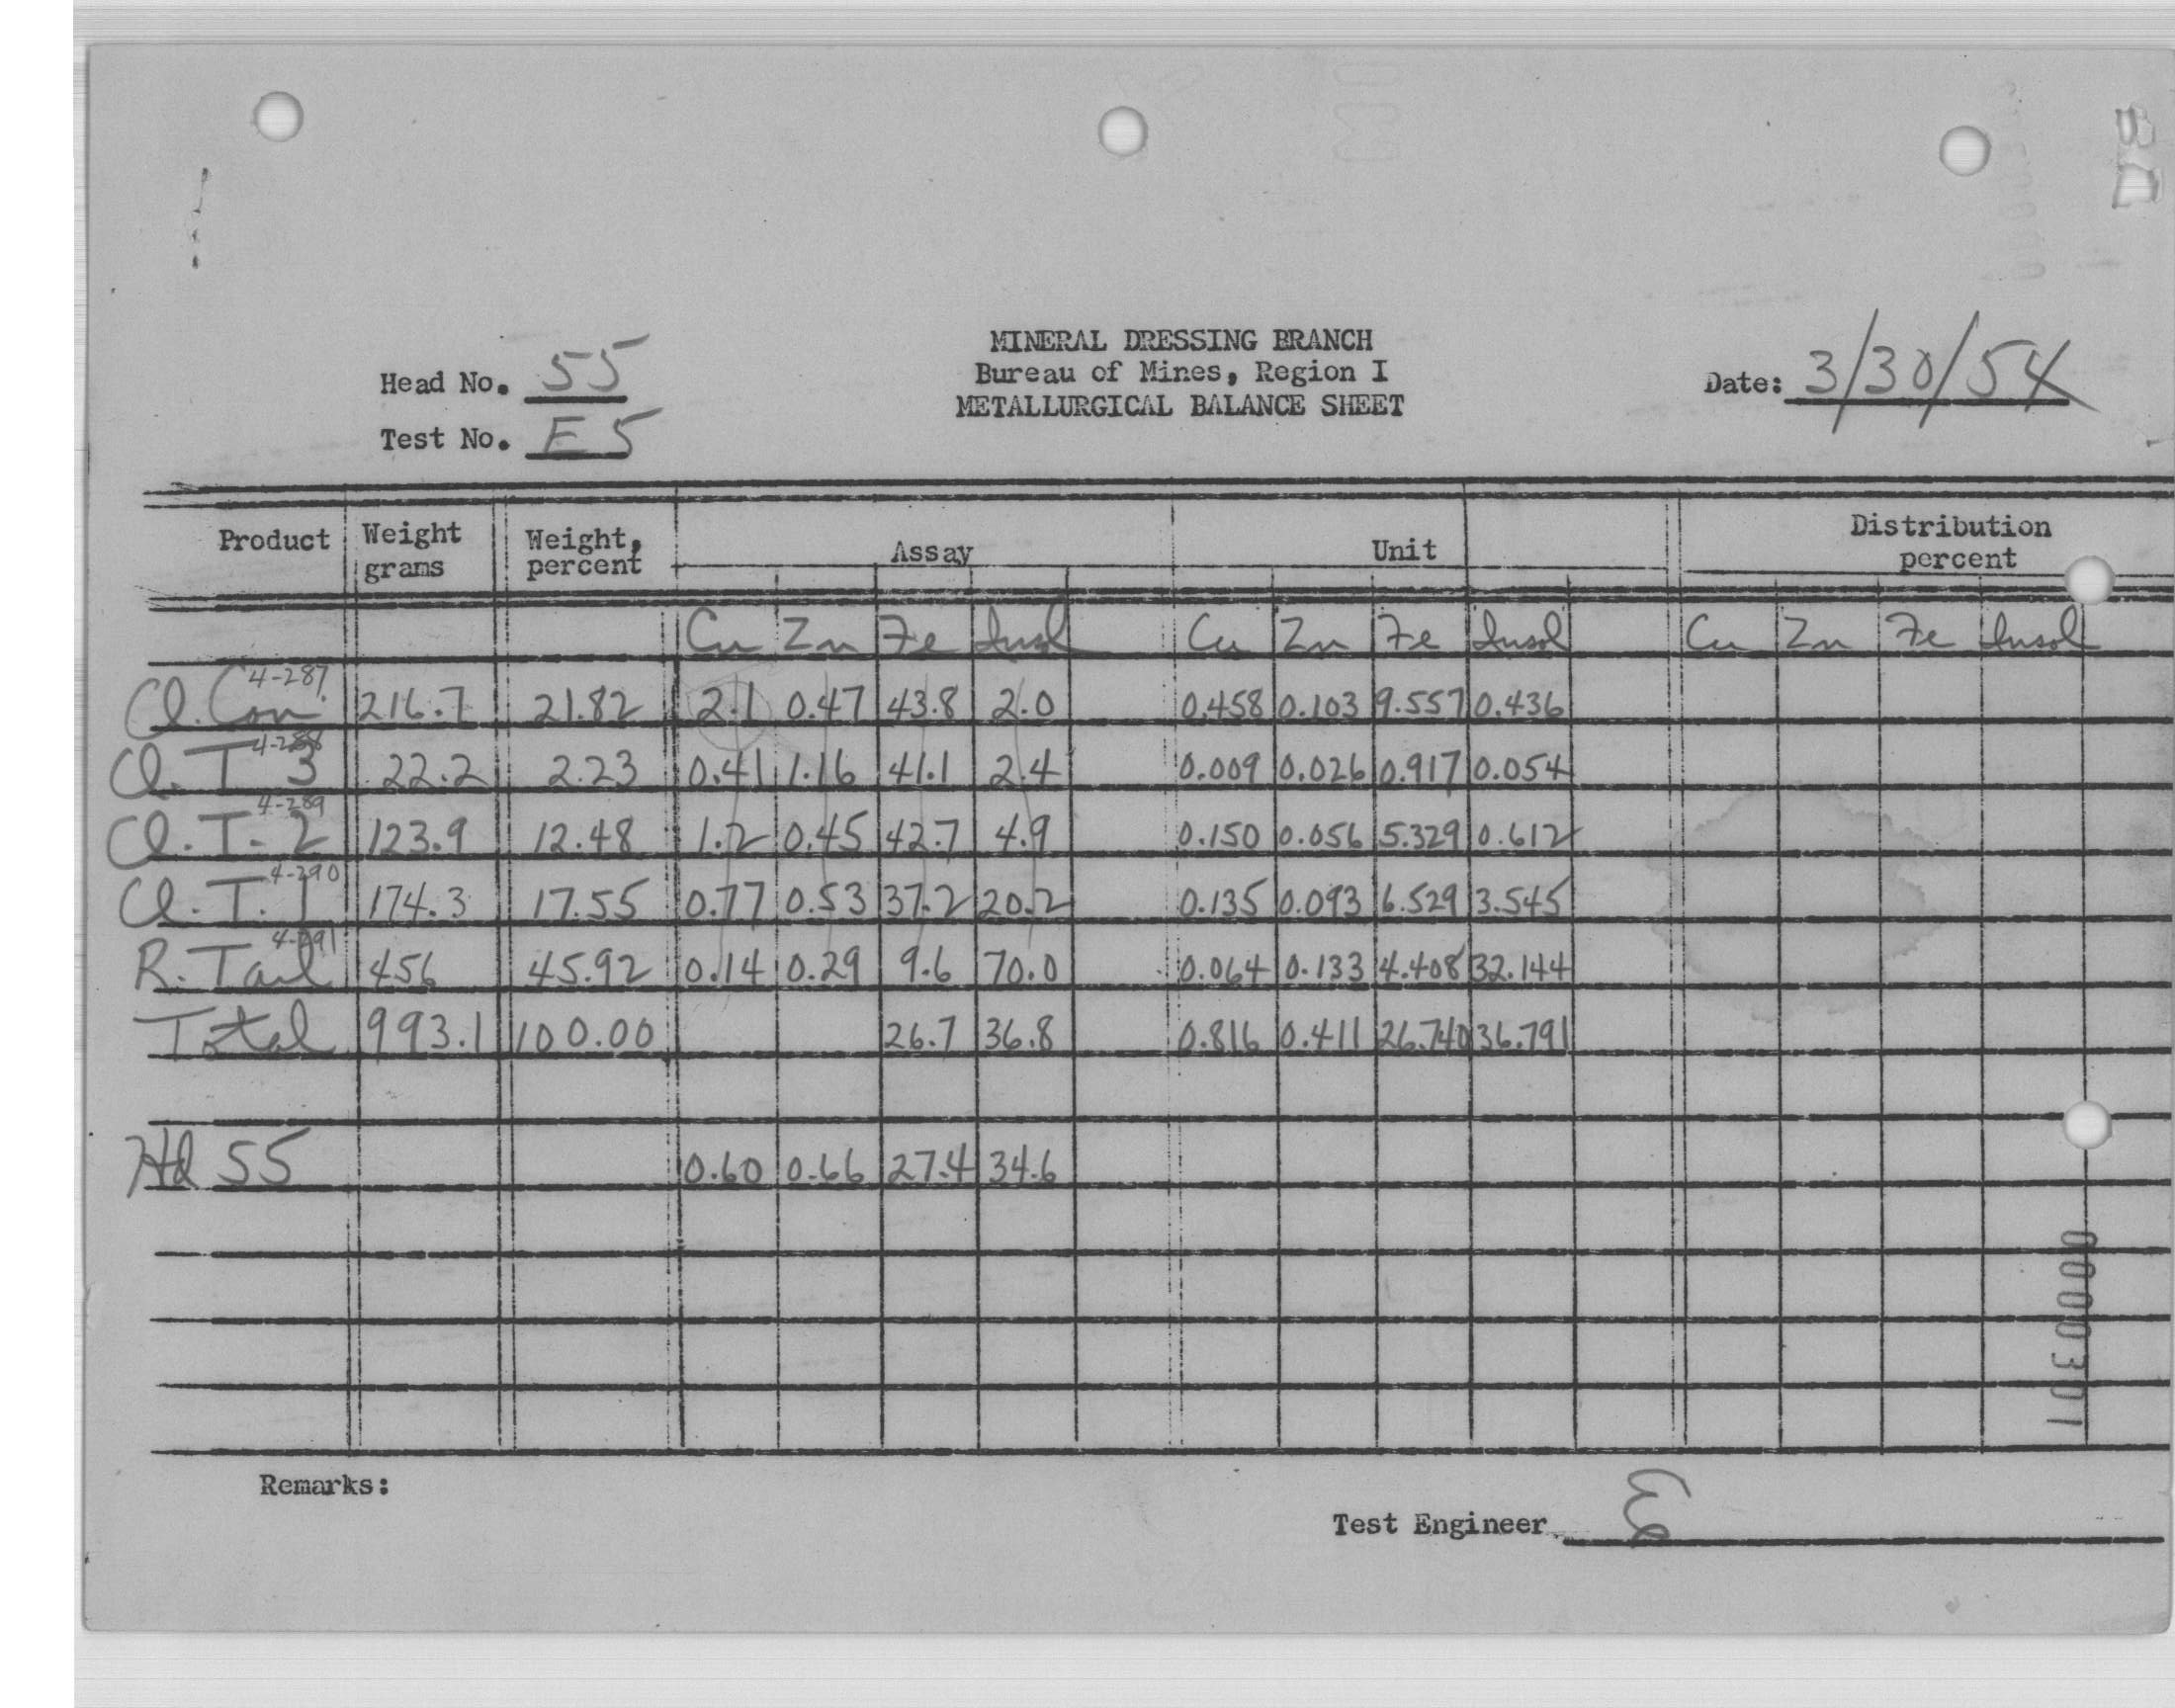 MINERAL DRESSING BRANCH
Head No. 55 Bureau of Mines, Region I Date: 3/30/54
METALLURGICAL BALANCE SHEET
Test No. E5
Product Weight grams Weight, percent Assay Unit Distribution percent
Cu Zn Fe Insol Cu Zn Fe Insol Cu Zn Fe Insol
Cl. Con 4-287 216.7 21.82 2.1 0.47 43.8 2.0 0.458 0.103 9.557 0.436
Cl. T 3 4-288 22.2 2.23 0.41 1.16 41.1 2.4 0.009 0.026 0.917 0.054
Cl. T. 2 4-289 123.9 12.48 1.2 0.45 42.7 4.9 0.150 0.056 5.329 0.612
Cl. T. 1 4-290 174.3 17.55 0.77 0.53 37.2 20.2 0.135 0.093 6.529 3.545
R. Tail 4-291 456 45.92 0.14 0.29 9.6 70.0 0.064 0.133 4.408 32.144
Total 993.1 100.00 26.7 36.8 0.816 0.411 26.740 36.791
Hd 55 0.60 0.66 27.4 34.6
0000301
Remarks:
Test Engineer E